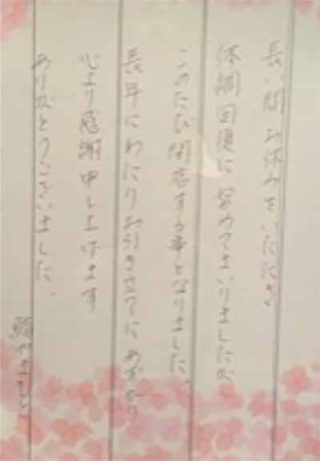 長い間お休みをいただき
体調回復に努めてまいりましたが
このたび閉店する事となりました。
長年にわたりお引き立てにあずかり
心より感謝申し上げます
ありがとうございました。